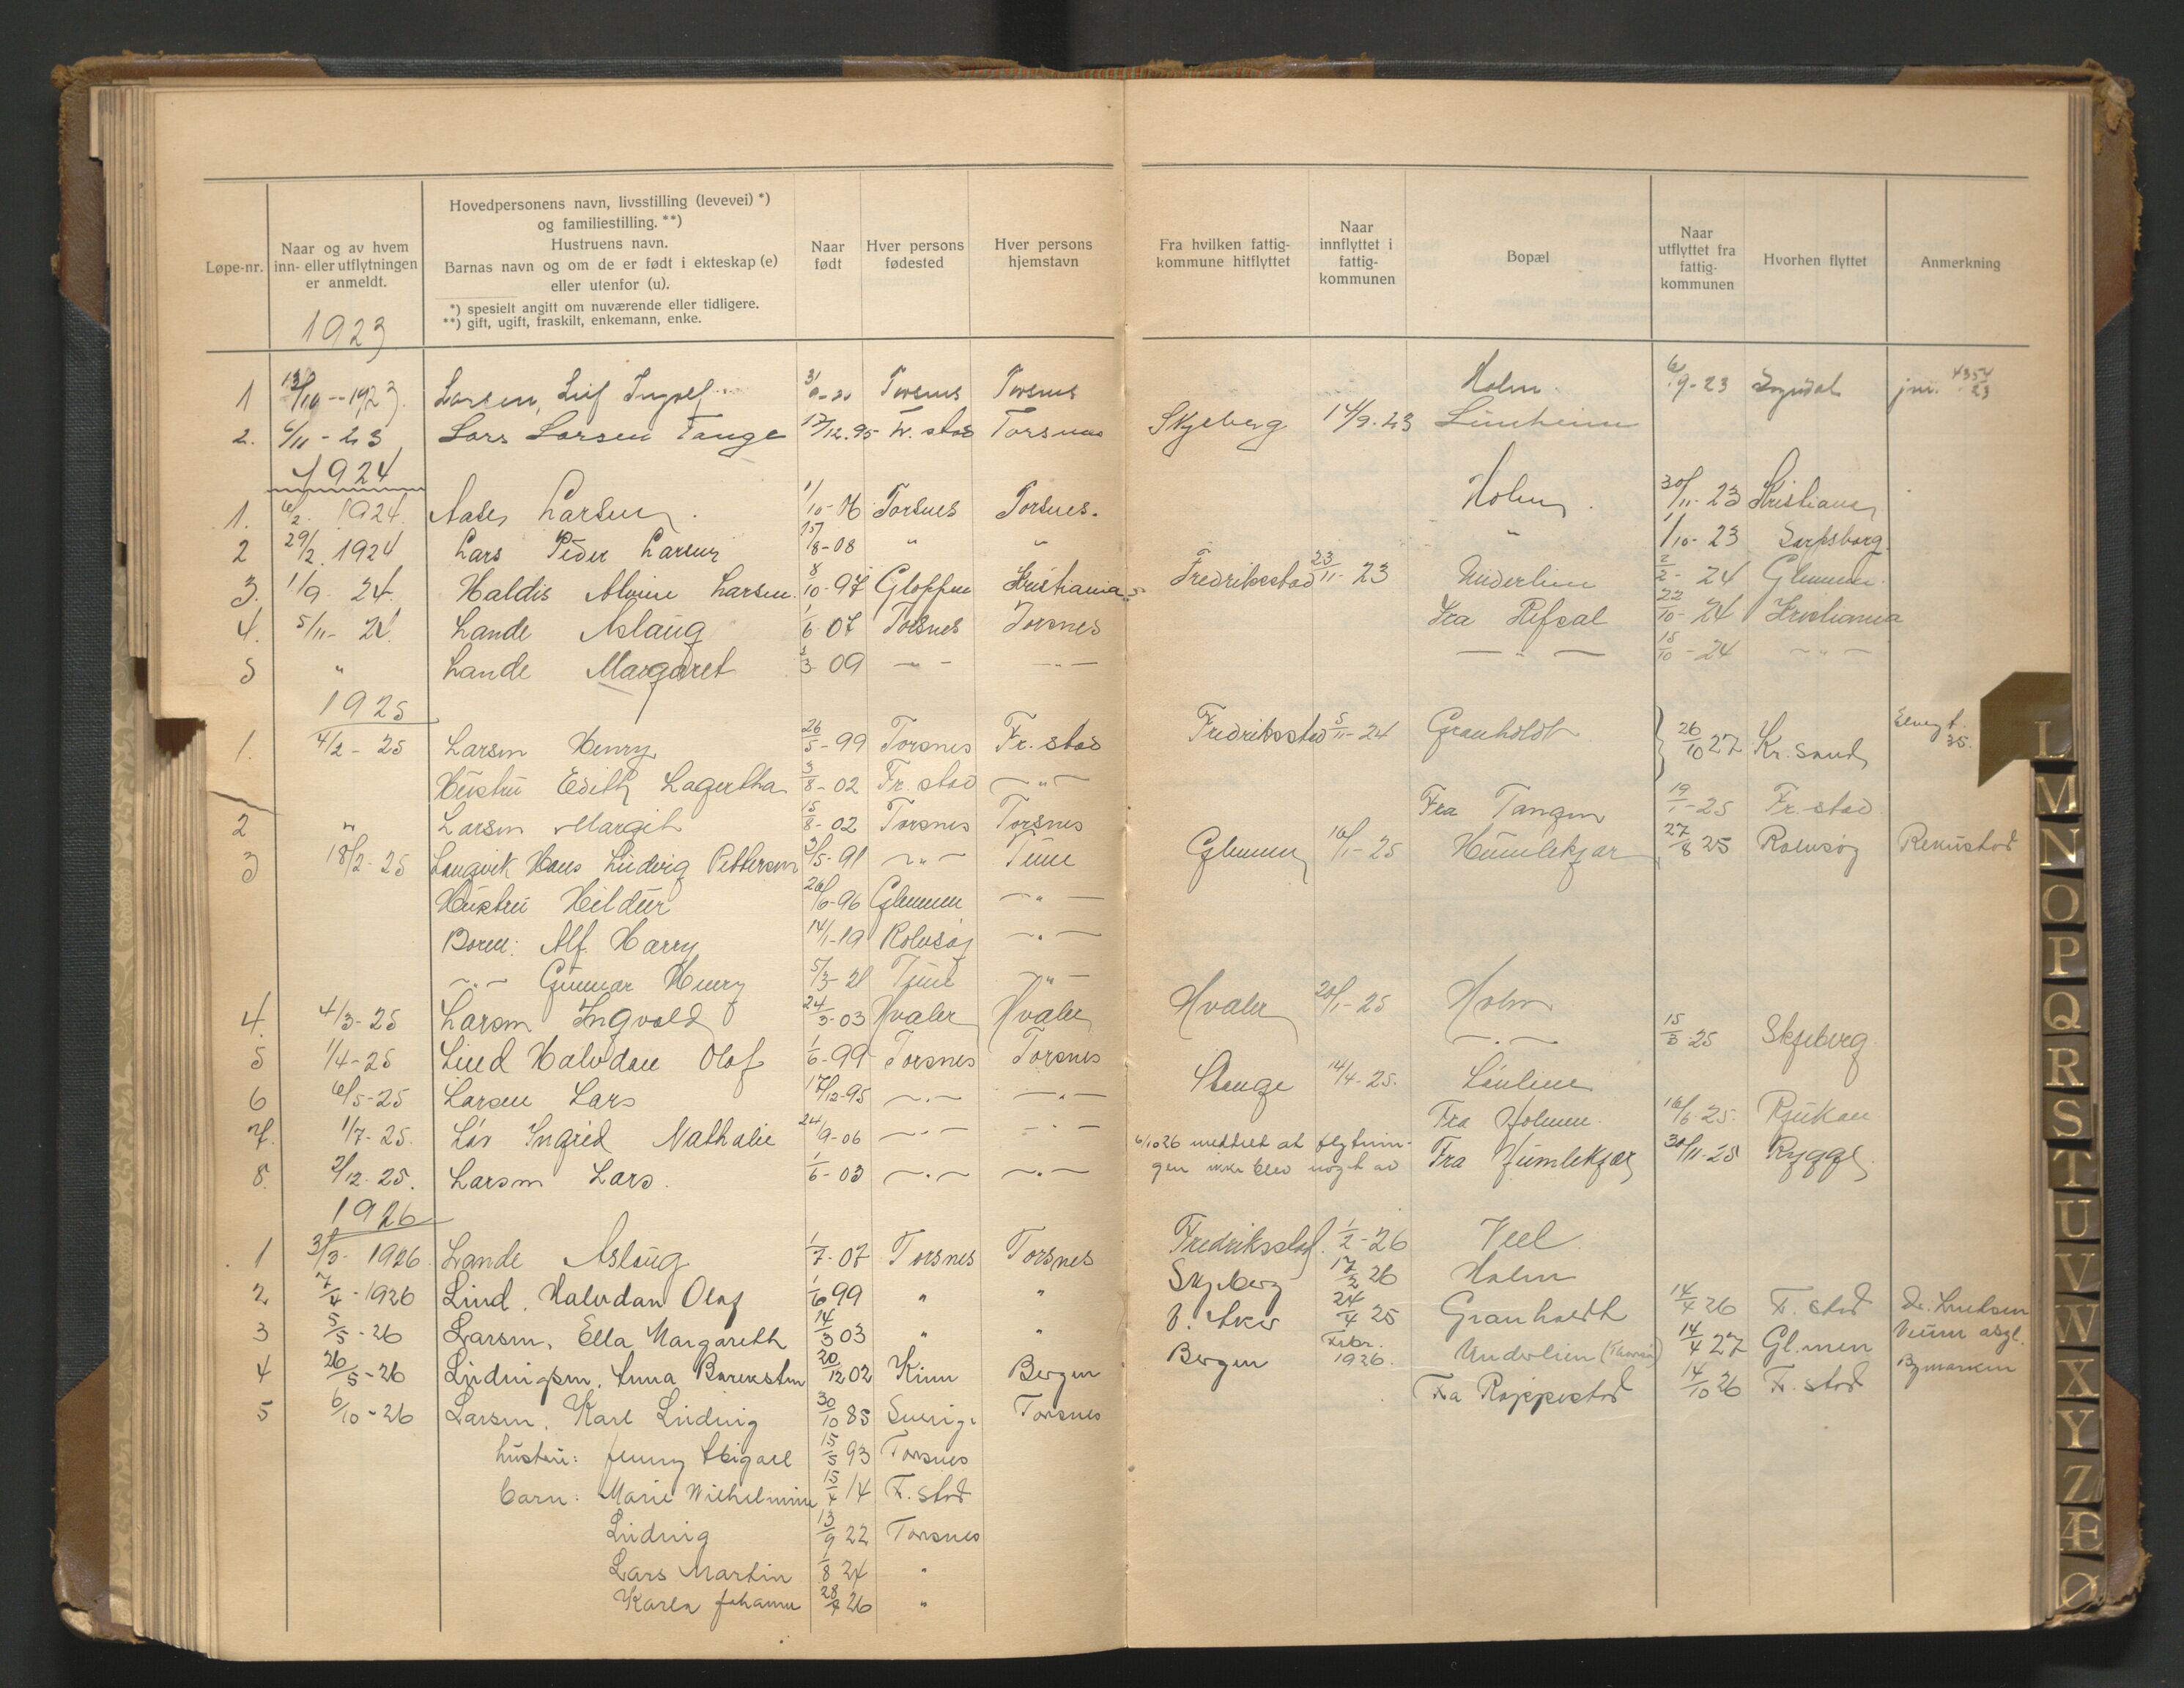 Løpe-nr. | Naar og av hvem inn- eller utflytningen er anmeldt. | Hovedpersonens navn, livsstilling (levevei) *) og familiestilling. **) Hustruens navn. Barnas navn og om de er født i ekteskap (e) eller utenfor (u). *) spesielt angitt om nuværende eller tidligere. **) gift, ugift, fraskilt, enkemann, enke. | Naar født | Hver persons fødested | Hver persons hjemstavn | Fra hvilken fattig-kommune hitflyttet | Naar innflyttet i fattig-kommunen | Bopæl | Naar utflyttet fra fattig-kommunen | Hvorhen flyttet | Anmerkning
1923
1 13/10 - 1923. Larsen, Leif Ingolf Torsnes Torsnes Holm 9-23 jnr. 4354/23
2. 6/11-23 Lars Larsen Tange 17/12.95 Fr. stad Torsnes Skjeberg 14/9.23
1924
1. 6/2. 1924. Aase Larsen. 1/10-06 Torsnes Torsnes. Holm. 30/11-23 Kristiania
2 29/2. 1924 Lars Peder Larsen 17/8-08 " " " 1/10-23 Sarpsborg.
3. 1/9 24. Haldis Larsen. 8/10-97 Gloppen Kristiania Fredriksstad 23/11-23 Underlien 2/2-24 Glemmen.
4. 5/11-24. Lande Aslaug 1/6 07 Torsnes Torsnes Fra Refsal 22/10-24 Kristiania
5 " Lande Margaret 3/3 09 -"- -"- -"- 15/10-24 -"-
1925
1. 4/2-25 Larsen Henry 26/5-99 Torsnes Fr. stad Fredriksstad 5/11-24 Granholdt 26/10 27 Kr. sand 35.
Hustru Edith Lagertha 3/8-02 Fr. stad -"-
2 " Larsen Margit 15/8-02 Torsnes Torsnes Fra Tangen 19/1-25 Fr. stad
3 18/2-25 Langvik Hans Ludvig Pettersen 31/5-91 -"- Tune Glemmen 16/1-25 Humlekjær 27/8 25 Rolvsøy
Hustru Hildur 26/6-96 Glemmen -"-
Barn: Alf Harry 14/1-19 Rolvsøy -"-
-"- Gunnar Henry 5/3-21 Tune -"-
4. 4/3-25 Larsen Ingvald 24/3-03 Hvaler Hvaler Hvaler 20/1-25 Holm
5 1/4-25 Lind Halvdan Olaf 1/6-99 Torsnes Torsnes -"- 15/3 25 Skjeberg
6 6/5-25 Larsen Lars 17/12-95 -"- -"- Stange 14/4-25.
7. 1/7-25. Løv Ingrid Nathalie 24/9-06 -"- -"- Fra Holmen. 16/6-25. Rjukan
8. 2/12-25. Larsen Lars. 1/6-03 -"- -"- 6/10 26 meddelt at flytningen ikke blev noget av Fra Humlekjær 30/11-25 Rygge
1926
1 31/3-1926. Lande Aslaug 1/7-07 Torsnes Torsnes Fredriksstad. 1/2-26 Veel
2 7/4-1926 Lind, Halvdan Olaf 1/6 99 " " Skjeberg 17/2 26 Holm
3 5/5-26 Larsen, Ella Margareth 14/3 03 " " Ø. Aker 24/4 25 Granholdt 14/4 26 F. stad
4 26/5-26 Ludvigsen, Anna Bareksten 20/12 02 Kinn Bergen Bergen Febr. 1926. Underlien 14/4 27 Gl.men
5 6/10-26 Larsen, Karl Ludvig 30/10 85 Sverige Torsnes Fra Røppestad 14/10 26 F. stad Bymarken
hustru: Jenny Abigael 15/5 93 Torsnes
barn: Marie Wilhelmine 15/4 14 F. stad
Ludvig 13/9 22 Torsnes
Lars Martin 1/8 24 "
Karen Johanne 28/7 26 "
L
M
N
O
P
Q
R
S
T
U
V
W
X
Y
Z
Æ
Ø